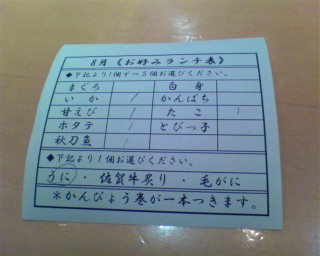 8月《お好みランチ表》
◆下記より1個ずつ5個お選びください。
まぐろ 白身
いか / かんぱち
甘えび / たこ /
ホタテ / とびっ子
秋刀魚 /
◆下記より1個お選びください。
うに・佐賀牛炙り・毛がに
※かんぴょう巻が一本つきます。